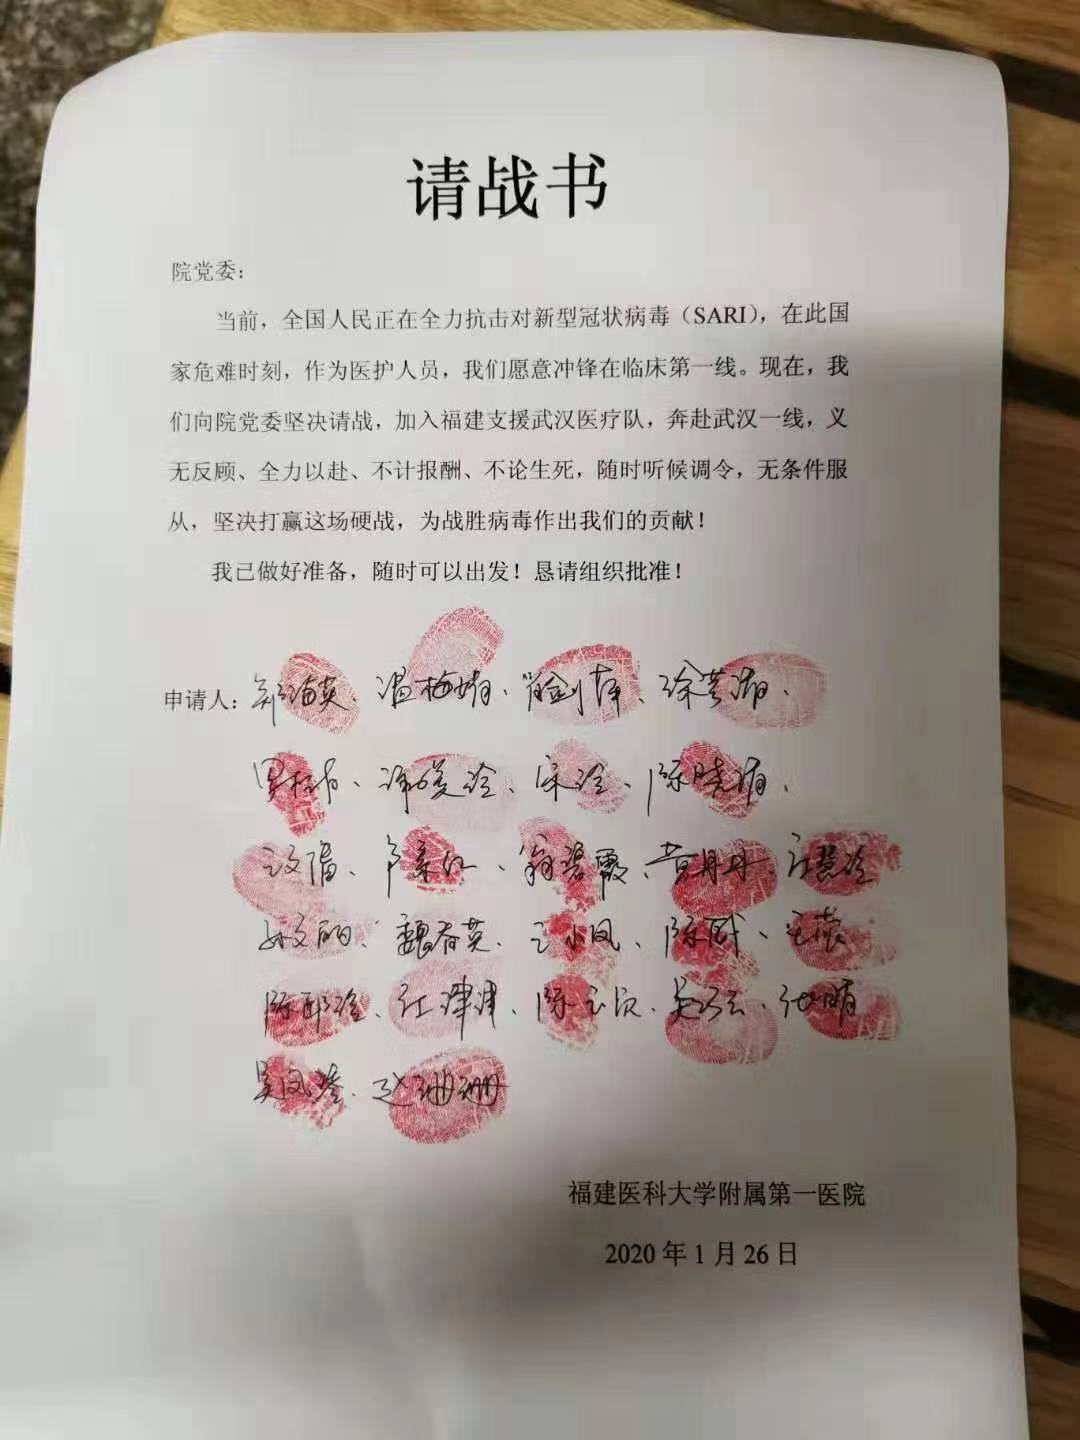 请战书
院党委：
当前，全国人民正在全力抗击对新型冠状病毒（SARI），在此国
家危难时刻，作为医护人员，我们愿意冲锋在临床第一线。现在，我
们向院党委坚决请战，加入福建支援武汉医疗队，奔赴武汉一线，义
无反顾、全力以赴、不计报酬、不论生死，随时听候调令，无条件服
从，坚决打赢这场硬战，为战胜病毒作出我们的贡献！
我已做好准备，随时可以出发！恳请组织批准！
申请人：郑海英、温梅娟、
宋冷、陈晓娟、
翁碧霞、黄丹丹、
魏春英、王小凤、陈威、
江津津、
赵珊珊
福建医科大学附属第一医院
2020 年 1 月 26 日